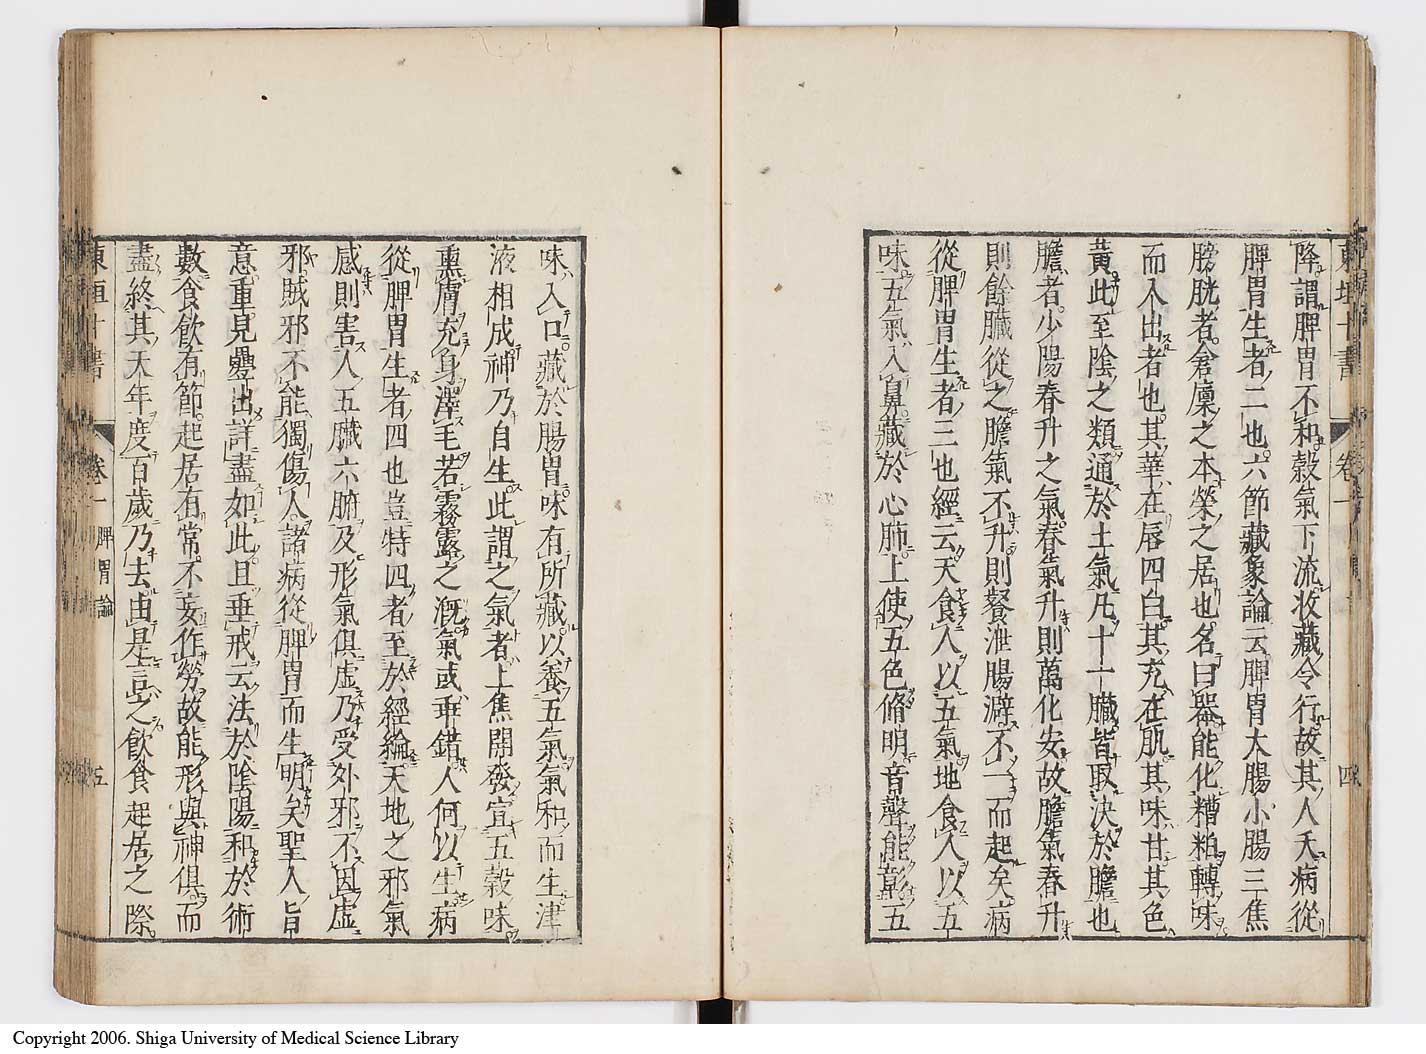 東垣十書 卷一 四
降謂脾胃不和穀氣下流收藏令行故其人夭病從
脾胃生者二也六節藏象論云脾胃大腸小腸三焦
膀胱者倉廩之本榮之居也名曰器能化糟粕轉味
而入出者也其華在唇四白其充在肌其味甘其色
黃此至陰之類通於土氣凡十一臟皆取決於膽也
膽者少陽春升之氣春氣升則萬化安故膽氣春升
則餘臟從之膽氣不升則飱泄腸澼不一而起矣病
從脾胃生者三也經云天食人以五氣地食人以五
味五氣入鼻藏於心肺上使五色脩明音聲能彰五
味入口藏於腸胃味有所藏以養五氣氣和而生津
液相成神乃自生此謂之氣者上焦開發宣五穀味
熏膚充身澤毛若霧露之漑氣或乖錯人何以生病
從脾胃生者四也豈特四者至於經綸天地之邪氣
感則害人五臟六腑及形氣俱虛乃受外邪不因虛
邪賊邪不能獨傷人諸病從脾胃而生明矣聖人旨
意重見疊出詳盡如此且垂戒云法於陰陽和於術
數食飲有節起居有常不妄作勞故能形與神俱而
盡終其天年度百歲乃去由是言之飲食起居之際
東垣十書 卷一 脾胃論 五
Copyright 2006. Shiga University of Medical Science Library